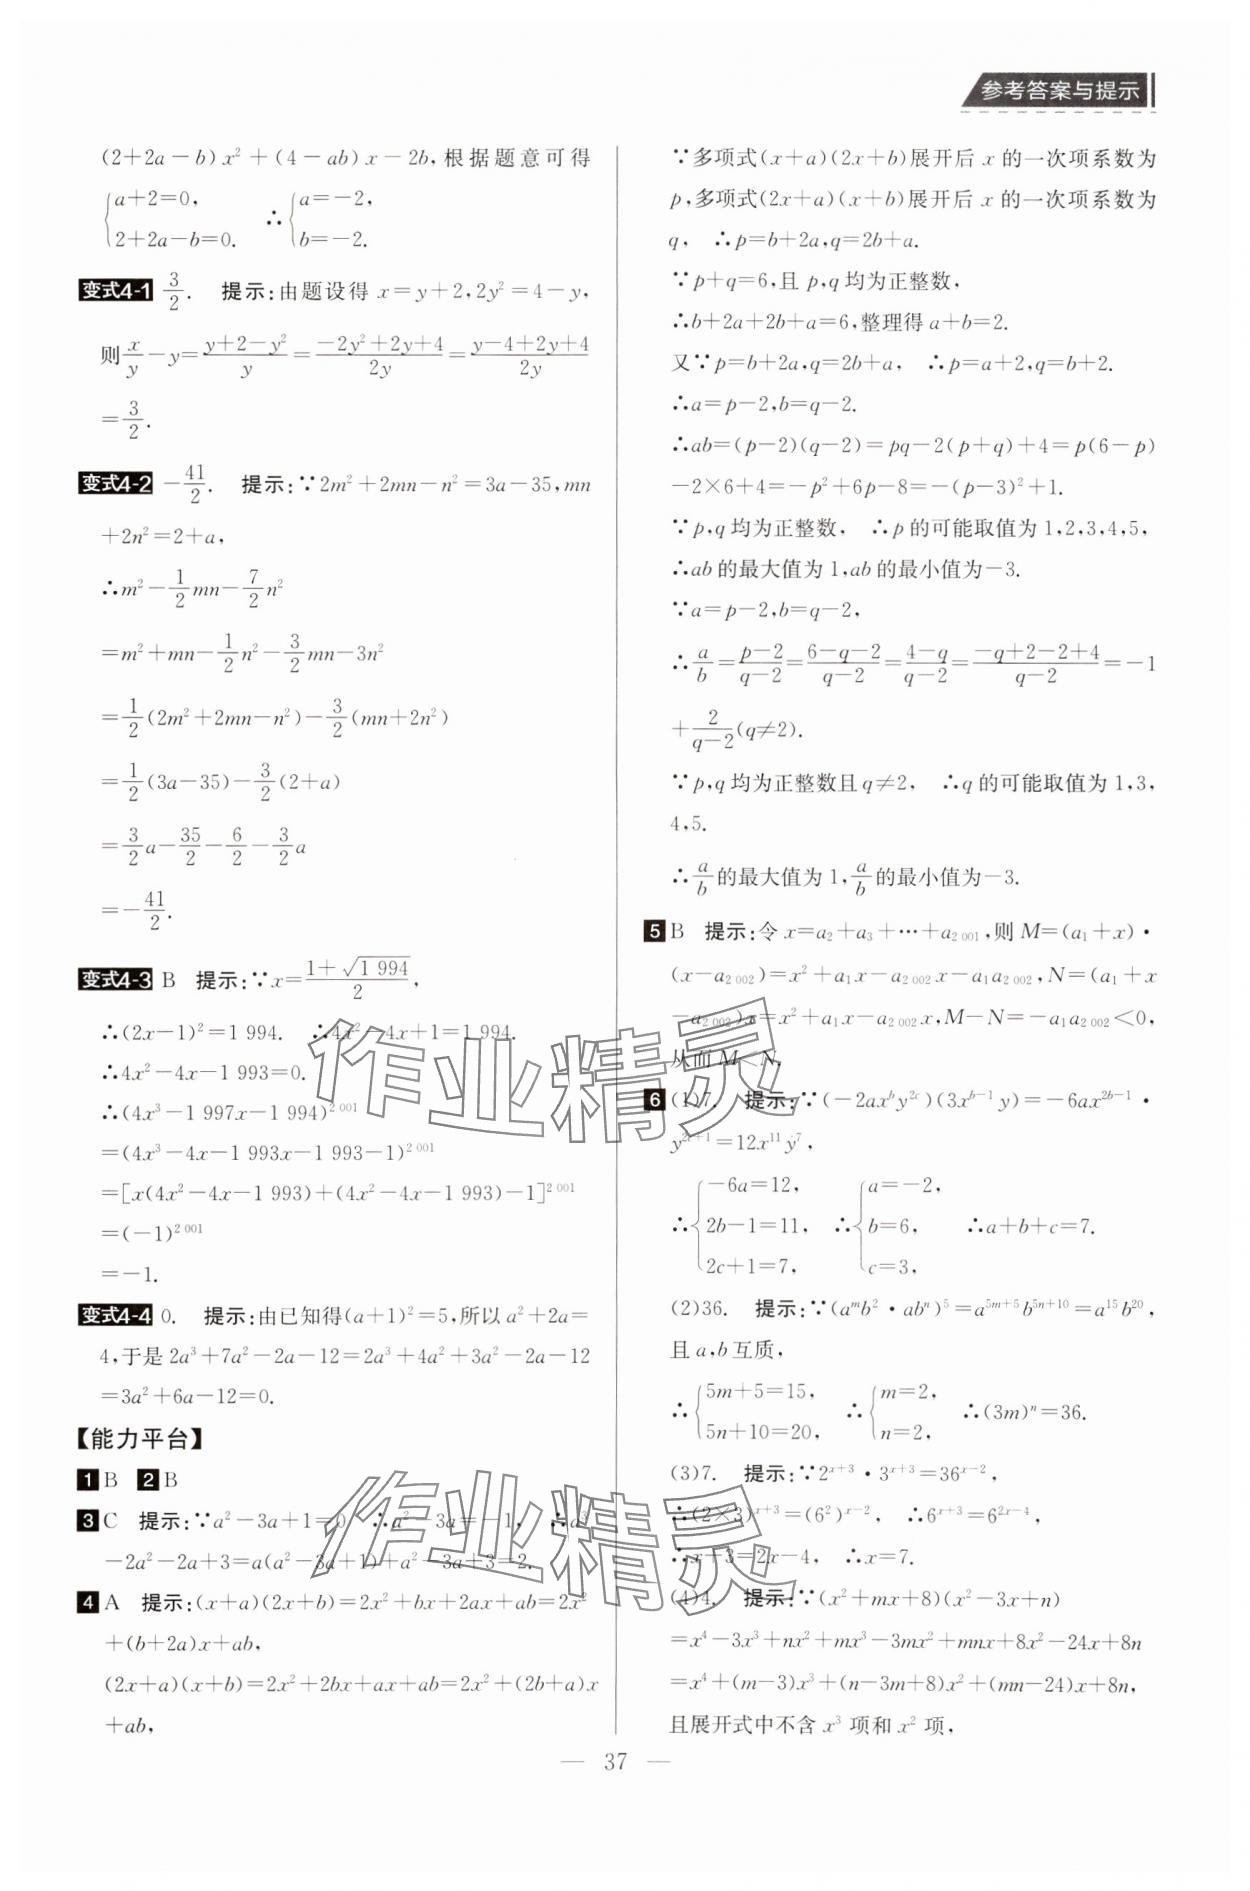 参考答案与提示
(2+2a-b)x²+(4-ab)x-2b,根据题意可得
{a+2=0, 2+2a-b=0. ∴{a=-2, b=-2.
变式4-1 3/2. 提示:由题设得 x=y+2,2y²=4-y,
则x/y-y=(y+2-y²)/y=(-2y²+2y+4)/2y=(y-4+2y+4)/2y
=3/2.
变式4-2 -41/2. 提示:∵2m²+2mn-n²=3a-35,mn
+2n²=2+a,
∴m²-1/2mn-7/2n²
=m²+mn-1/2n²-3/2mn-3n²
=1/2(2m²+2mn-n²)-3/2(mn+2n²)
=1/2(3a-35)-3/2(2+a)
=3/2a-35/2-6/2-3/2a
=-41/2.
变式4-3 B 提示:∵x=(1+√1 994)/2,
∴(2x-1)²=1 994. ∴4x²-4x+1=1 994.
∴4x²-4x-1 993=0.
∴(4x³-1 997x-1 994)^2 001
=(4x³-4x-1 993x-1 993-1)^2 001
=[x(4x²-4x-1 993)+(4x²-4x-1 993)-1]^2 001
=(-1)^2 001
=-1.
变式4-4 0. 提示:由已知得(a+1)²=5,所以 a²+2a=
4,于是 2a³+7a²-2a-12=2a³+4a²+3a²-2a-12
=3a²+6a-12=0.
【能力平台】
1 B 2 B
3 C 提示:∵a²-3a+1=0 ∴a²-3a=-1, ∴a³
-2a²-2a+3=a(a²-3a+1)+a²-3a+3=2.
4 A 提示:(x+a)(2x+b)=2x²+bx+2ax+ab=2x²
+(b+2a)x+ab,
(2x+a)(x+b)=2x²+2bx+ax+ab=2x²+(2b+a)x
+ab,
∵多项式(x+a)(2x+b)展开后 x 的一次项系数为
p,多项式(2x+a)(x+b)展开后 x 的一次项系数为
q, ∴p=b+2a,q=2b+a.
∵p+q=6,且 p,q 均为正整数,
∴b+2a+2b+a=6,整理得 a+b=2.
又∵p=b+2a,q=2b+a, ∴p=a+2,q=b+2.
∴a=p-2,b=q-2.
∴ab=(p-2)(q-2)=pq-2(p+q)+4=p(6-p)
-2×6+4=-p²+6p-8=-(p-3)²+1.
∵p,q 均为正整数, ∴p 的可能取值为 1,2,3,4,5,
∴ab 的最大值为 1,ab 的最小值为-3.
∵a=p-2,b=q-2,
∴a/b=(p-2)/(q-2)=(6-q-2)/(q-2)=(4-q)/(q-2)=(-q+2-2+4)/(q-2)=-1
+2/(q-2)(q≠2).
∵p,q 均为正整数且 q≠2, ∴q 的可能取值为 1,3,
4,5.
∴a/b的最大值为 1,a/b的最小值为-3.
5 B 提示:令 x=a₂+a₃+…+a₂ ₀₀₁,则 M=(a₁+x)·
(x-a₂ ₀₀₂)=x²+a₁x-a₂ ₀₀₂x-a₁a₂ ₀₀₂,N=(a₁+x
-a₂ ₀₀₂)x=x²+a₁x-a₂ ₀₀₂x,M-N=-a₁a₂ ₀₀₂<0,
从而 M<N.
6 (1)7. 提示:∵(-2ax^b y^2c)(3x^(b-1)y)=-6ax^(2b-1)·
y^(2c+1)=12x¹¹y⁷,
∴{-6a=12, 2b-1=11, 2c+1=7, ∴{a=-2, b=6, c=3, ∴a+b+c=7.
(2)36. 提示:∵(a^m b²·ab^n)⁵=a^(5m+5)b^(5n+10)=a¹⁵b²⁰,
且 a,b 互质,
∴{5m+5=15, 5n+10=20, ∴{m=2, n=2, ∴(3m)^n=36.
(3)7. 提示:∵2^(x+3)·3^(x+3)=36^(x-2),
∴(2×3)^(x+3)=(6²)^(x-2), ∴6^(x+3)=6^(2x-4),
∴x+3=2x-4, ∴x=7.
(4)4. 提示:∵(x²+mx+8)(x²-3x+n)
=x⁴-3x³+nx²+mx³-3mx²+mnx+8x²-24x+8n
=x⁴+(m-3)x³+(n-3m+8)x²+(mn-24)x+8n,
且展开式中不含 x³ 项和 x² 项,
— 37 —
作业精灵
作业精灵